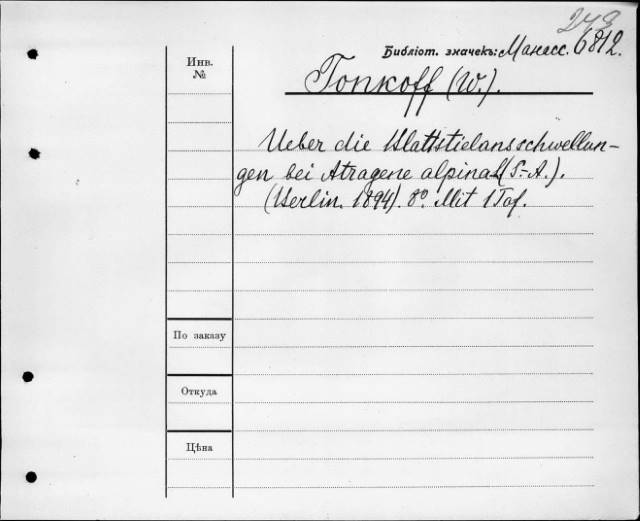 243
Библіот. значекъ: Манасс. 6812.
Инв. №
Tonkoff (W.).
Ueber die Blattstielansschwellun-
gen bei Atragene alpina L (S.-A.).
(Berlin. 1894). 8º. Mit 1 Taf.
По заказу
Откуда
Цѣна